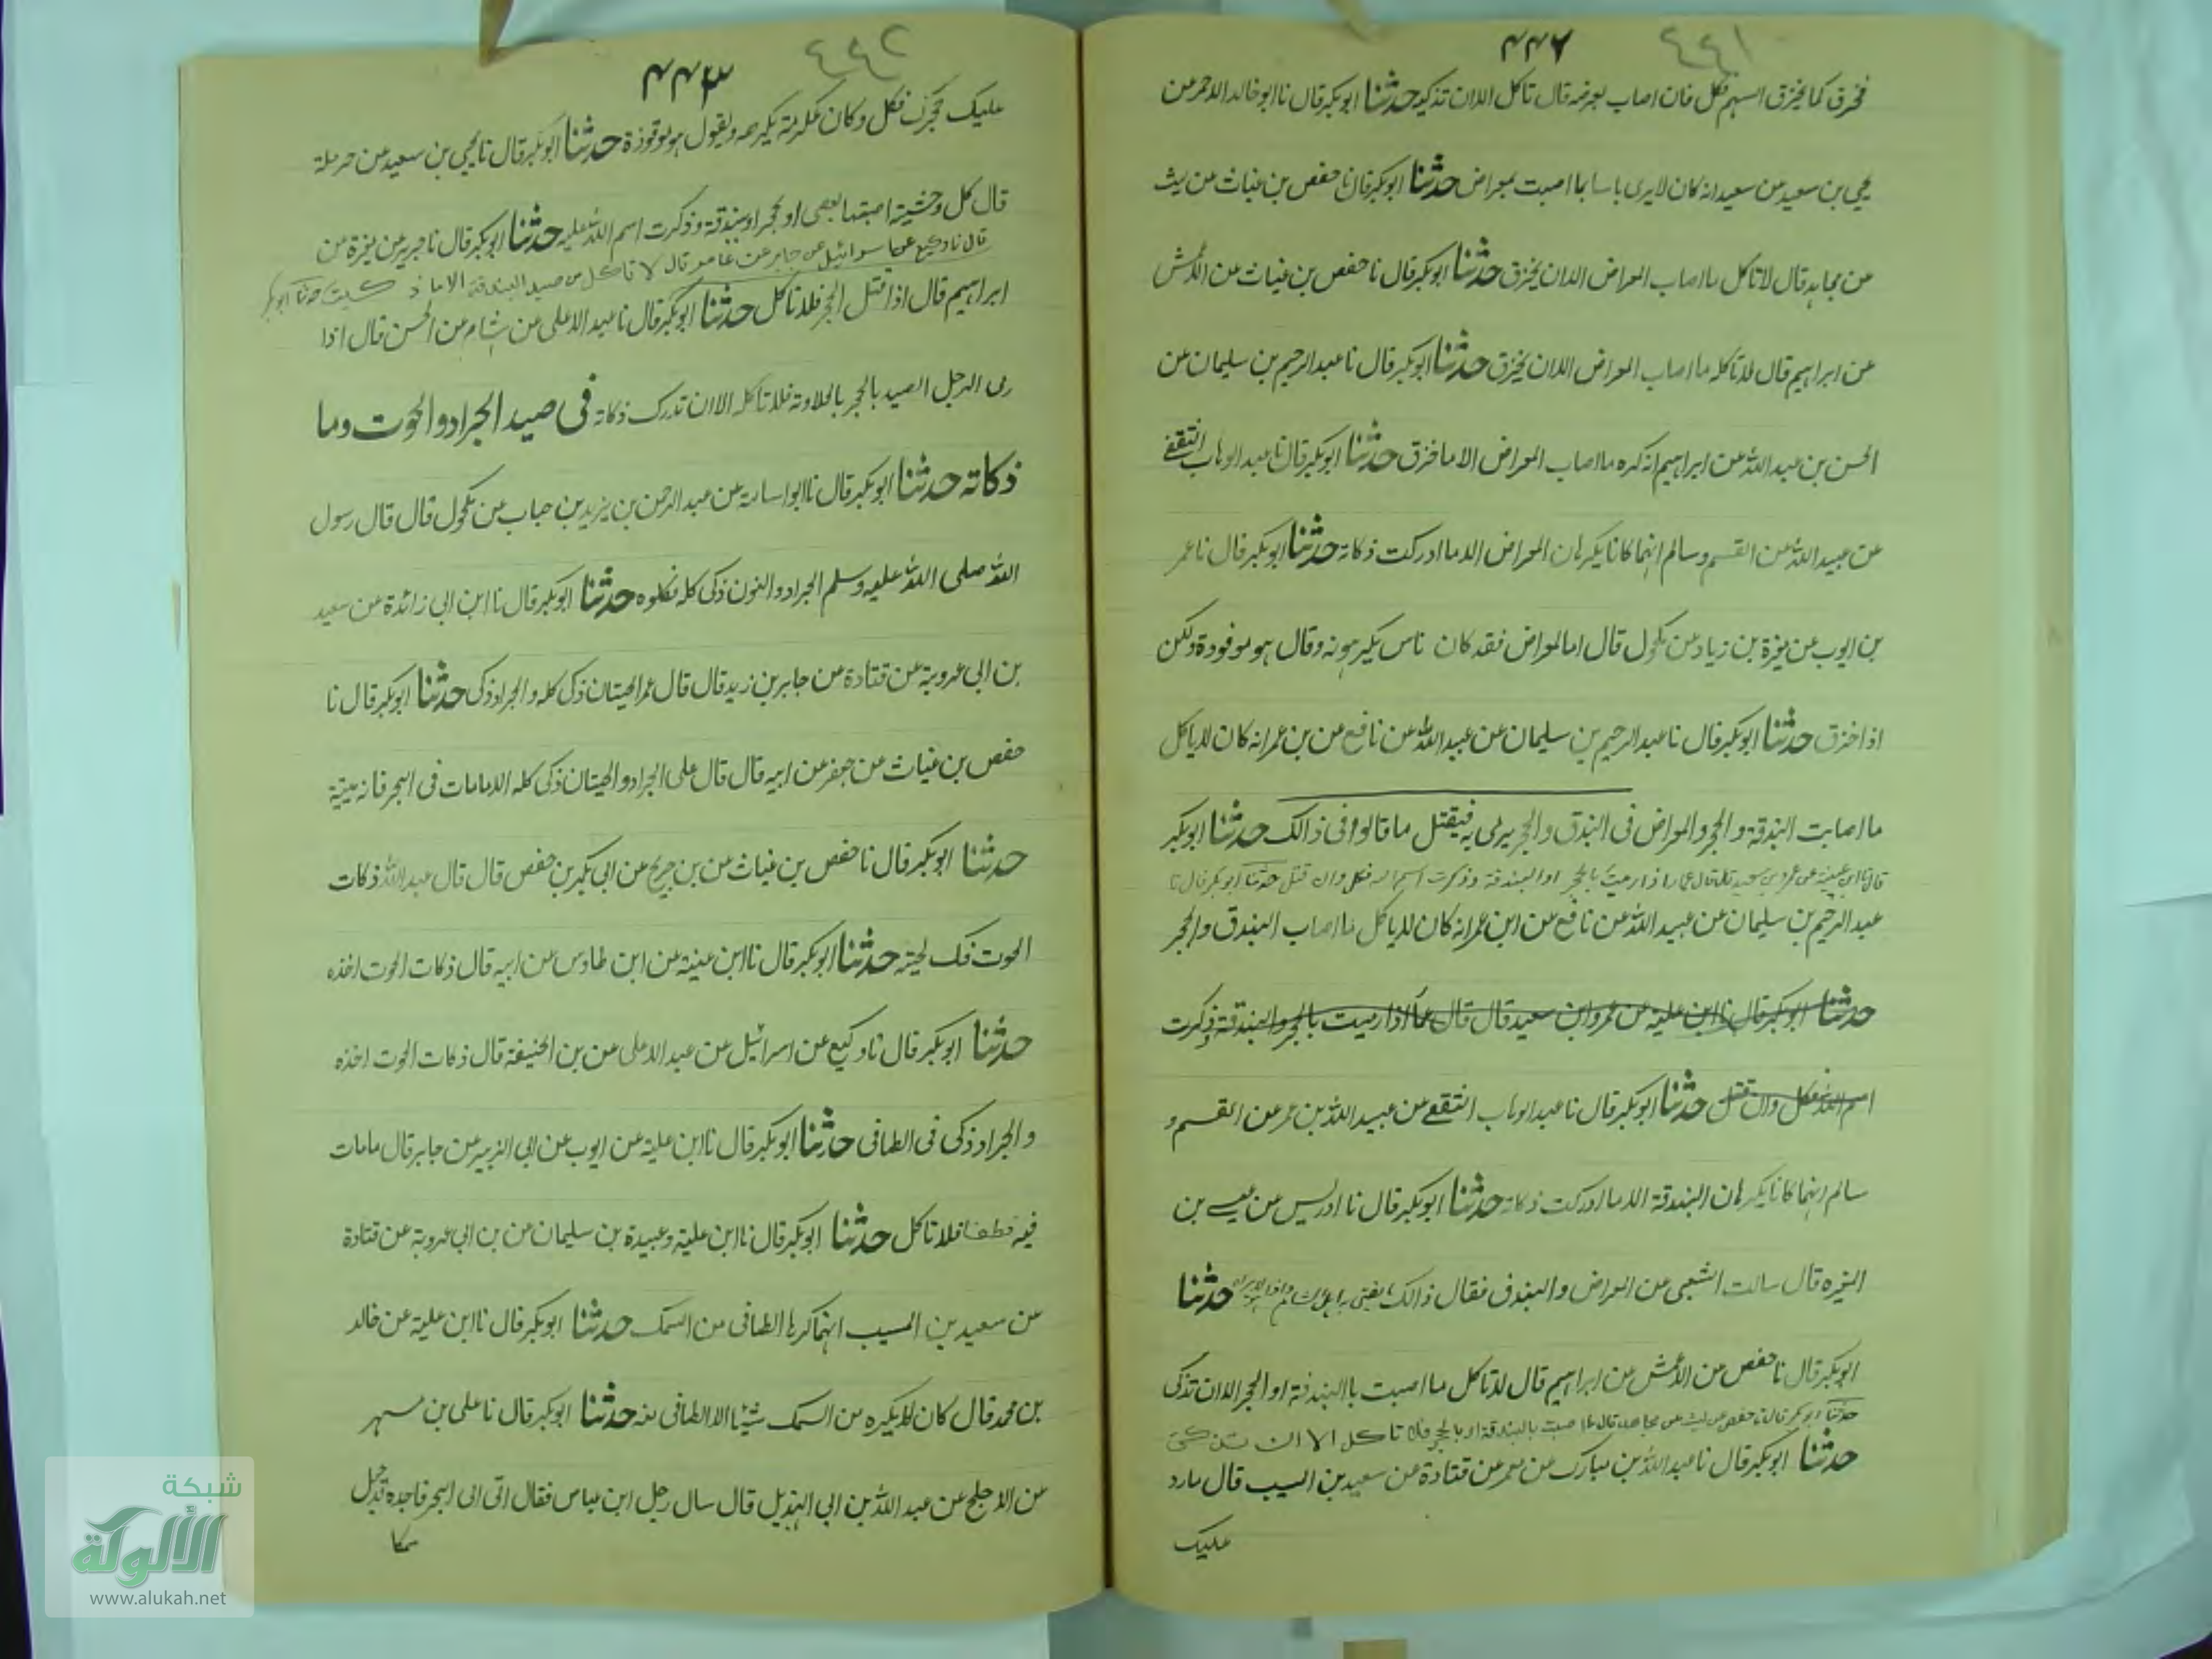 ٤٤١
٤٤٢
فخرق كما يخزق السهم فكل فان اصاب بعرضه قال تاكل الا ان تذكيه حدثنا ابو بكر قال نا ابو خالد الاحمر عن
يحيى بن سعيد عن سعيد انه كان لا يرى باسا بما اصبت بمعراض حدثنا ابو بكر قال نا حفص بن غياث عن ليث
عن مجاهد قال لا تاكل ما اصاب المعراض الا ان يخزق حدثنا ابو بكر قال نا حفص بن غياث عن الاعمش
عن ابراهيم قال لا تاكله ما اصاب المعراض الا ان يخزق حدثنا ابو بكر قال نا عبد الرحيم بن سليمان عن
الحسن بن عبيد الله عن ابراهيم انه كره ما اصاب المعراض الا ما خزق حدثنا ابو بكر قال نا عبد الوهاب الثقفي
عن عبيد الله عن القسم وسالم انهما كانا يكرهان المعراض الا ما ادركت ذكاته حدثنا ابو بكر قال نا عمر
بن ايوب عن مغيرة بن زياد عن مكحول قال اما المعراض فقد كان ناس يكرهونه وقال هو موقوذة ولكن
اذا خزق حدثنا ابو بكر قال نا عبد الرحيم بن سليمان عن عبيد الله عن نافع عن بن عمر انه كان لا ياكل
ما اصابت البندقة والحجر والمعراض فى البندق والحجر يرمى به فيقتل ما قالوا فى ذالك حدثنا ابو بكر
قال نا ابن عيينة عن عمرو بن سعيد قال قال عمار اذا رميت بالحجر او البندقة وذكرت اسم الله فكل وان قتل حدثنا ابو بكر قال نا
عبد الرحيم بن سليمان عن عبيد الله عن نافع عن ابن عمر انه كان لا ياكل ما اصاب البندق والحجر
حدثنا ابو بكر قال نا ابن علية عن عمرو ابن سعيد قال قال عمار اذا رميت بالحجر والبندقة وذكرت
اسم الله فكل وان قتل حدثنا ابو بكر قال نا عبد الوهاب الثقفي عن عبيد الله بن عمر عن القسم و
سالم انهما كانا يكرهان البندقة الا ما ادركت ذكاته حدثنا ابو بكر قال نا ادريس عن عيسى بن
المغيرة قال سالت الشعبى عن المعراض والبندق فقال ذالك حدثنا
ابو بكر قال نا حفص عن الاعمش عن ابراهيم قال لا تاكل ما اصبت باالبندقة او الحجر الا ان تذكى
حدثنا ابو بكر قال نا حفص عن ليث عن مجاهد قال ما اصبت بالبندقة او بالحجر فلا تاكل الا ان تذكى
حدثنا ابو بكر قال نا عبد الله بن مبارك عن معمر عن قتادة عن سعيد بن المسيب قال ما رد
عليك
٤٤٢
٤٤٣
عليك حجرك فكل وكان عكرمة يكرهه ويقول هو موقوذة حدثنا ابو بكر قال نا يحيى بن سعيد عن حرملة
قال كل وحشية اصبتها بعصى او بحجر او ببندقة وذكرت اسم الله عليه حدثنا ابو بكر قال نا جرير عن مغيرة عن
قال نا وكيع عن اسرائيل عن جابر عن عامر قال لا تاكل من صيد البندقة الا ما ذكيت حدثنا ابو بكر
ابراهيم قال اذا قتل الحجر فلا تاكل حدثنا ابو بكر قال نا عبد الاعلى عن هشام عن الحسن قال اذا
رمى الرجل الصيد بالحجر بالجلاوتة فلا تاكله الا ان تدرك ذكاته فى صيد الجراد والحوت وما
ذكاته حدثنا ابو بكر قال نا ابو اسامة عن عبد الرحمن بن يزيد بن جاب عن مكحول قال قال رسول
الله صلى الله عليه وسلم الجراد والنون ذكى كله فكلوه حدثنا ابو بكر قال نا ابن ابى زائدة عن سعيد
بن ابى عروبة عن قتادة عن جابر بن زيد قال قال عمر الحيتان ذكى كله والجراد ذكى حدثنا ابو بكر قال نا
حفص بن غياث عن جعفر عن ابيه قال قال على الجراد والحيتان ذكى كله الا ما مات فى البحر فانه ميتة
حدثنا ابو بكر قال نا حفص بن غياث عن بن جريج عن ابى بكر بن حفص قال قال عبد الله ذكات
الحوت فك لحيته حدثنا ابو بكر قال نا ابن عيينة عن ابن طاوس عن ابيه قال ذكات الحوت اخذه
حدثنا ابو بكر قال نا وكيع عن اسرائيل عن عبد الاعلى عن بن الحنيفة قال ذكات الحوت اخذه
والجراد ذكى فى الطافى حدثنا ابو بكر قال نا ابن علية عن ايوب عن ابى الزبير عن جابر قال ما مات
فيه فطفا فلا تاكل حدثنا ابو بكر قال نا ابن علية وعبيدة بن سليمان عن بن ابى عروبة عن قتادة
عن سعيد بن المسيب انهما كرها الطافى من السمك حدثنا ابو بكر قال نا ابن علية عن خالد
بن محمد قال كان لا يكره من السمك شيئا الا الطافى منه حدثنا ابو بكر قال نا على بن مسهر
عن الاجلح عن عبد الله بن ابى الهذيل قال سال رجل ابن عباس فقال اتى الى البحر فاجده قد جفل
سمكا
شبكة
الألوكة
www.alukah.net